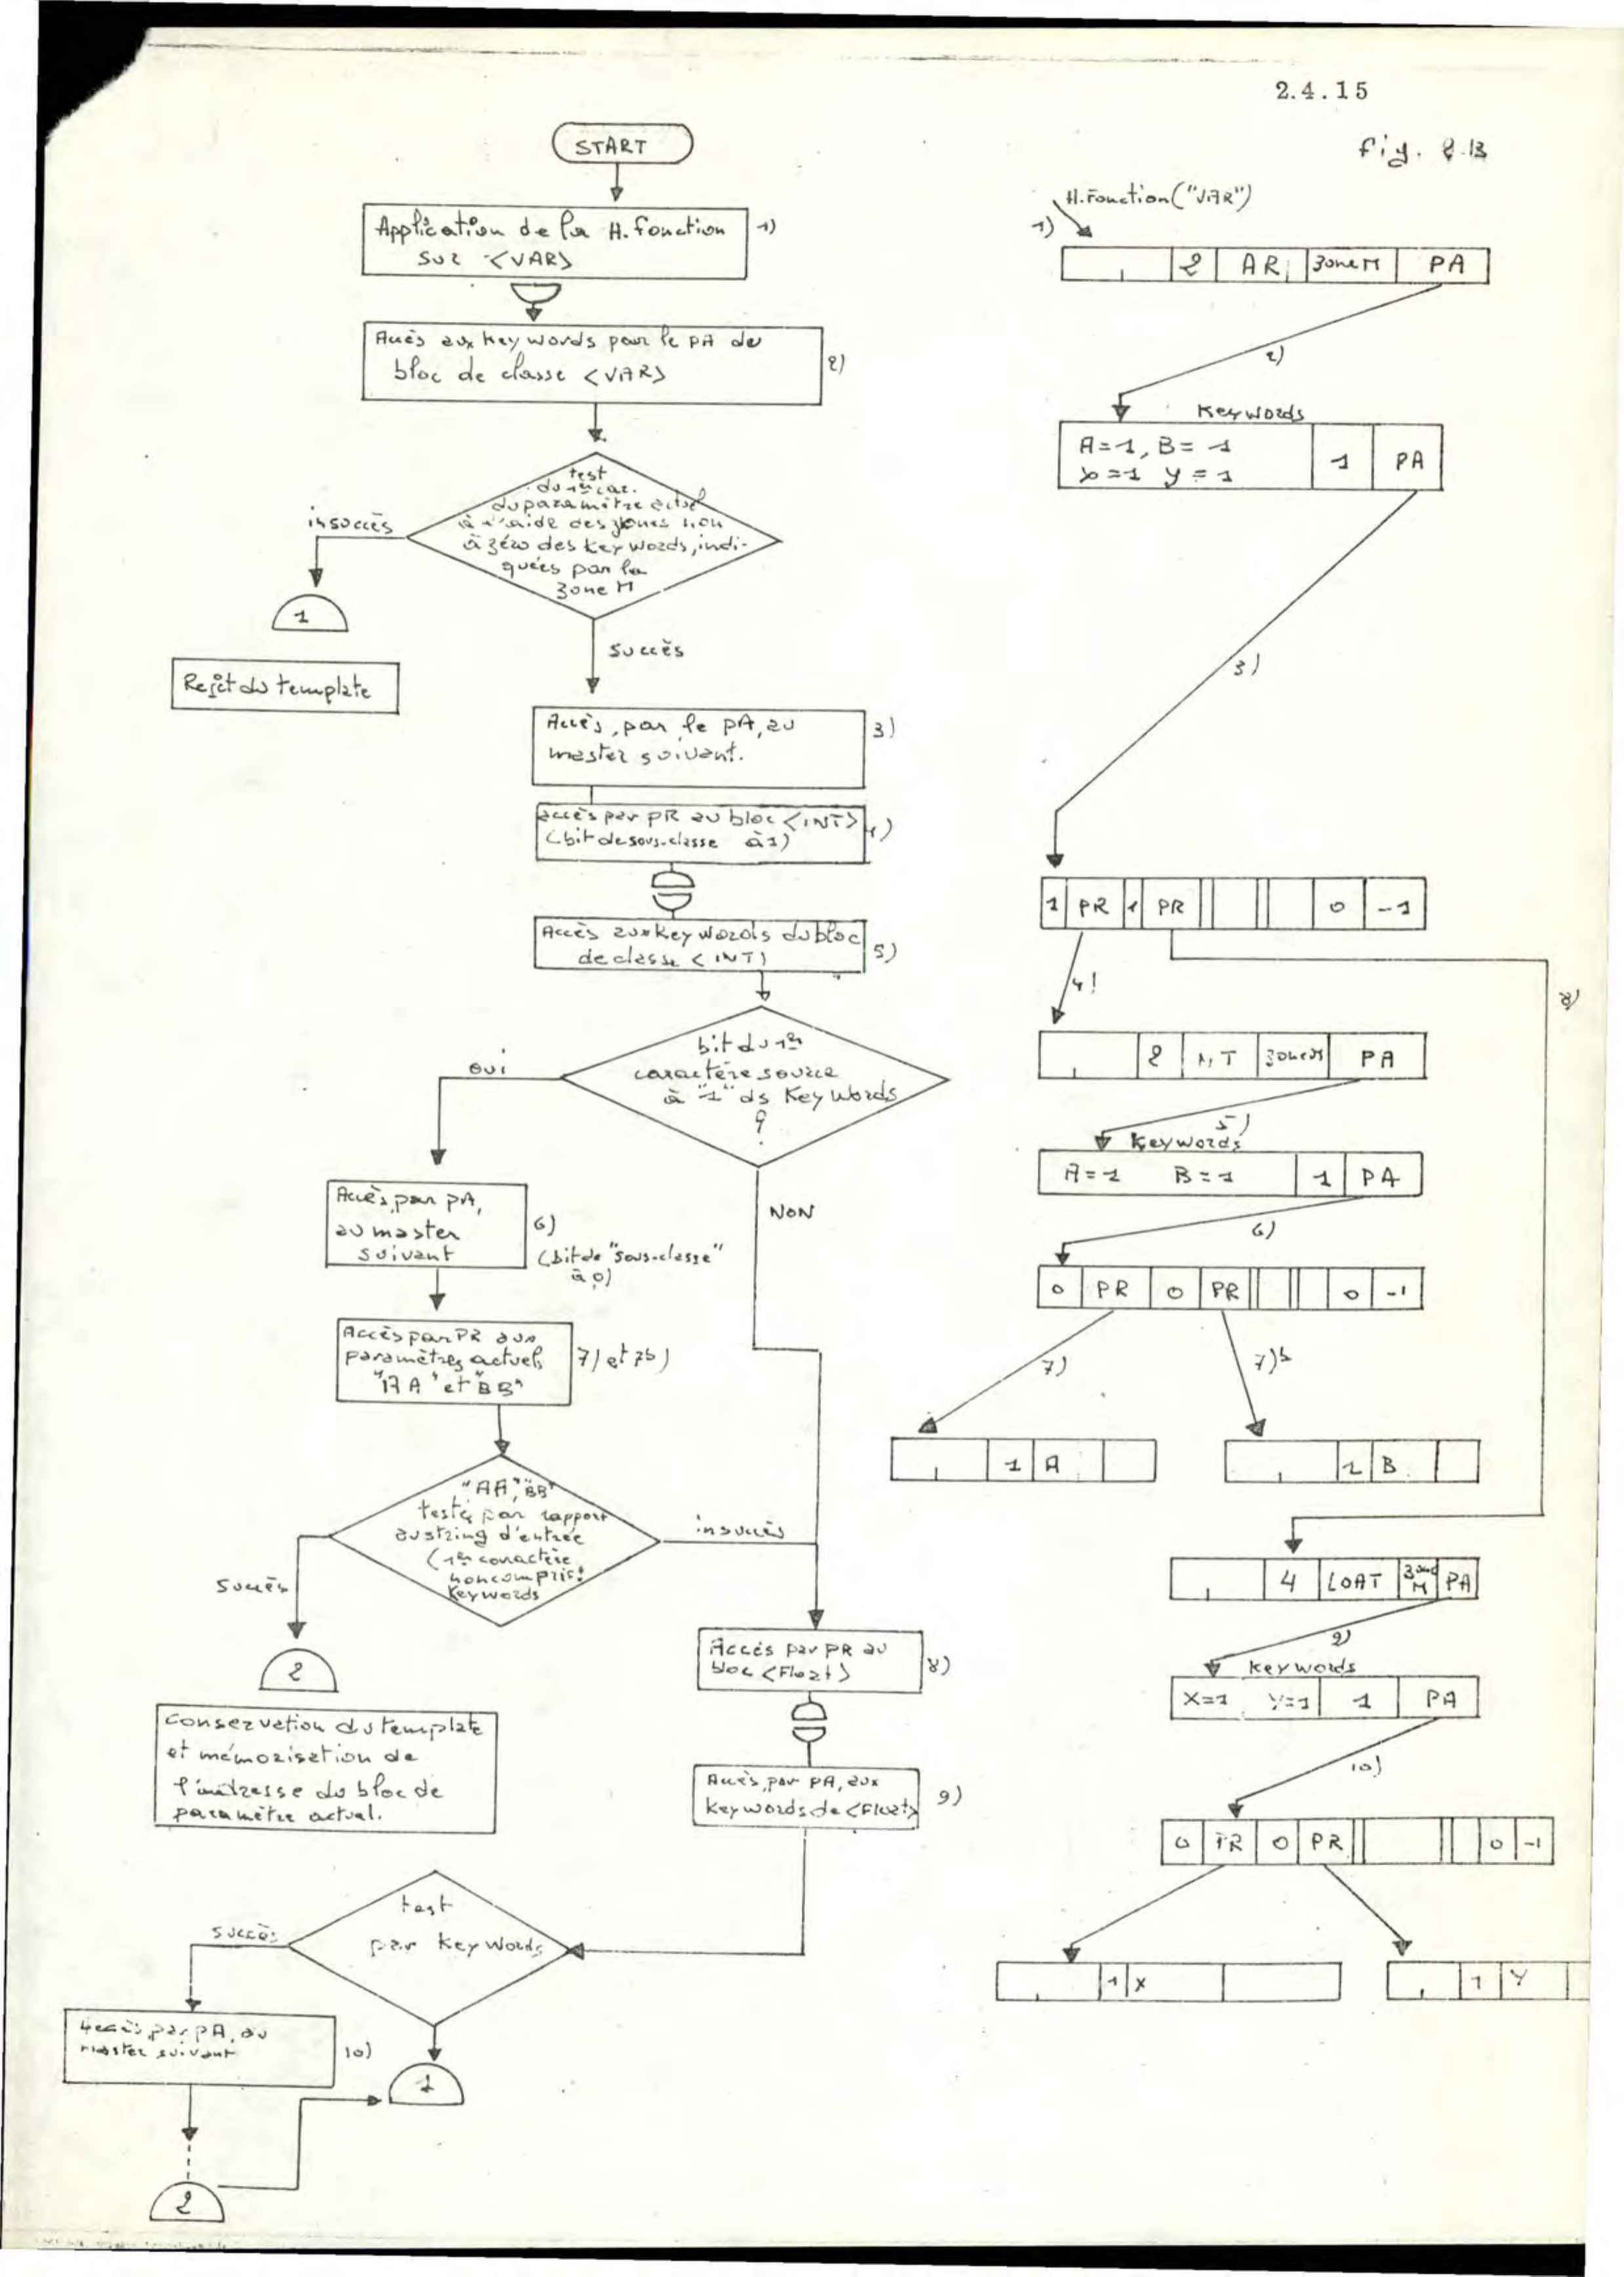 2.4.15
fig. 2.13
START
Application de la H. fonction
sur <VAR>
1)
Accès aux keywords par le PA du
bloc de classe <VAR>
2)
test
du 1er car.
du paramètre actuel
à l'aide des zones non
à zéro des keywords, indi-
quées par la
zone M
insuccès
1
Rejet du template
succès
Accès, par le PA, au
master suivant.
3)
accès par PR au bloc <INT>
(bit de sous-classe à 1)
4)
Accès aux keywords du bloc
de classe <INT>
5)
bit du 1er
caractère source
à "1" ds Keywords
?
oui
NON
Accès, par PA,
au master
suivant
6)
(bit de "sous-classe"
à 0)
Accès par PR aux
paramètres actuels
"AA" et "BB"
7) et 7b)
"AA", "BB"
testés par rapport
au string d'entrée
(1er caractère
non compris:
Keywords
insuccès
succès
2
Conservation du template
et mémorisation de
l'adresse du bloc de
paramètre actual.
Accès par PR au
bloc <Float>
8)
Accès, par PA, aux
keywords de <Float>
9)
test
par Keywords
succès
Accès, par PA, au
master suivant
10)
1
2
H.Fonction("VAR")
1)
2 AR zone M PA
2)
Keywords
A=1, B=1
X=1 Y=1
1 PA
3)
1 PR 1 PR 0 -1
4)
8)
2 NT zone M PA
5)
Keywords
A=1 B=1 1 PA
6)
0 PR 0 PR 0 -1
7)
7)b
1 A
1 B
4 LOAT zone M PA
9)
keywords
X=1 Y=1 1 PA
10)
0 PR 0 PR 0 -1
1 X
1 Y